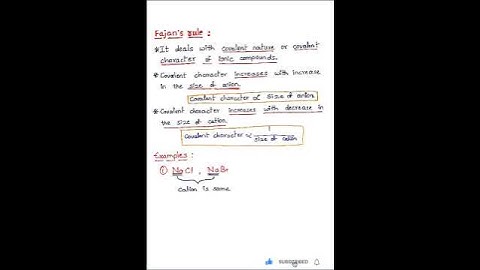 Fajan's rule :
*It deals with covalent nature or covalent
character of Ionic compounds.
*Covalent character increases with increase
in the size of anion.
Covalent character ∝ Size of anion
*Covalent character increases with decrease in
the size of cation.
Covalent character ∝ 1/size of cation
Examples :
① NaCl , NaBr
Cation is same
SUBSCRIBED